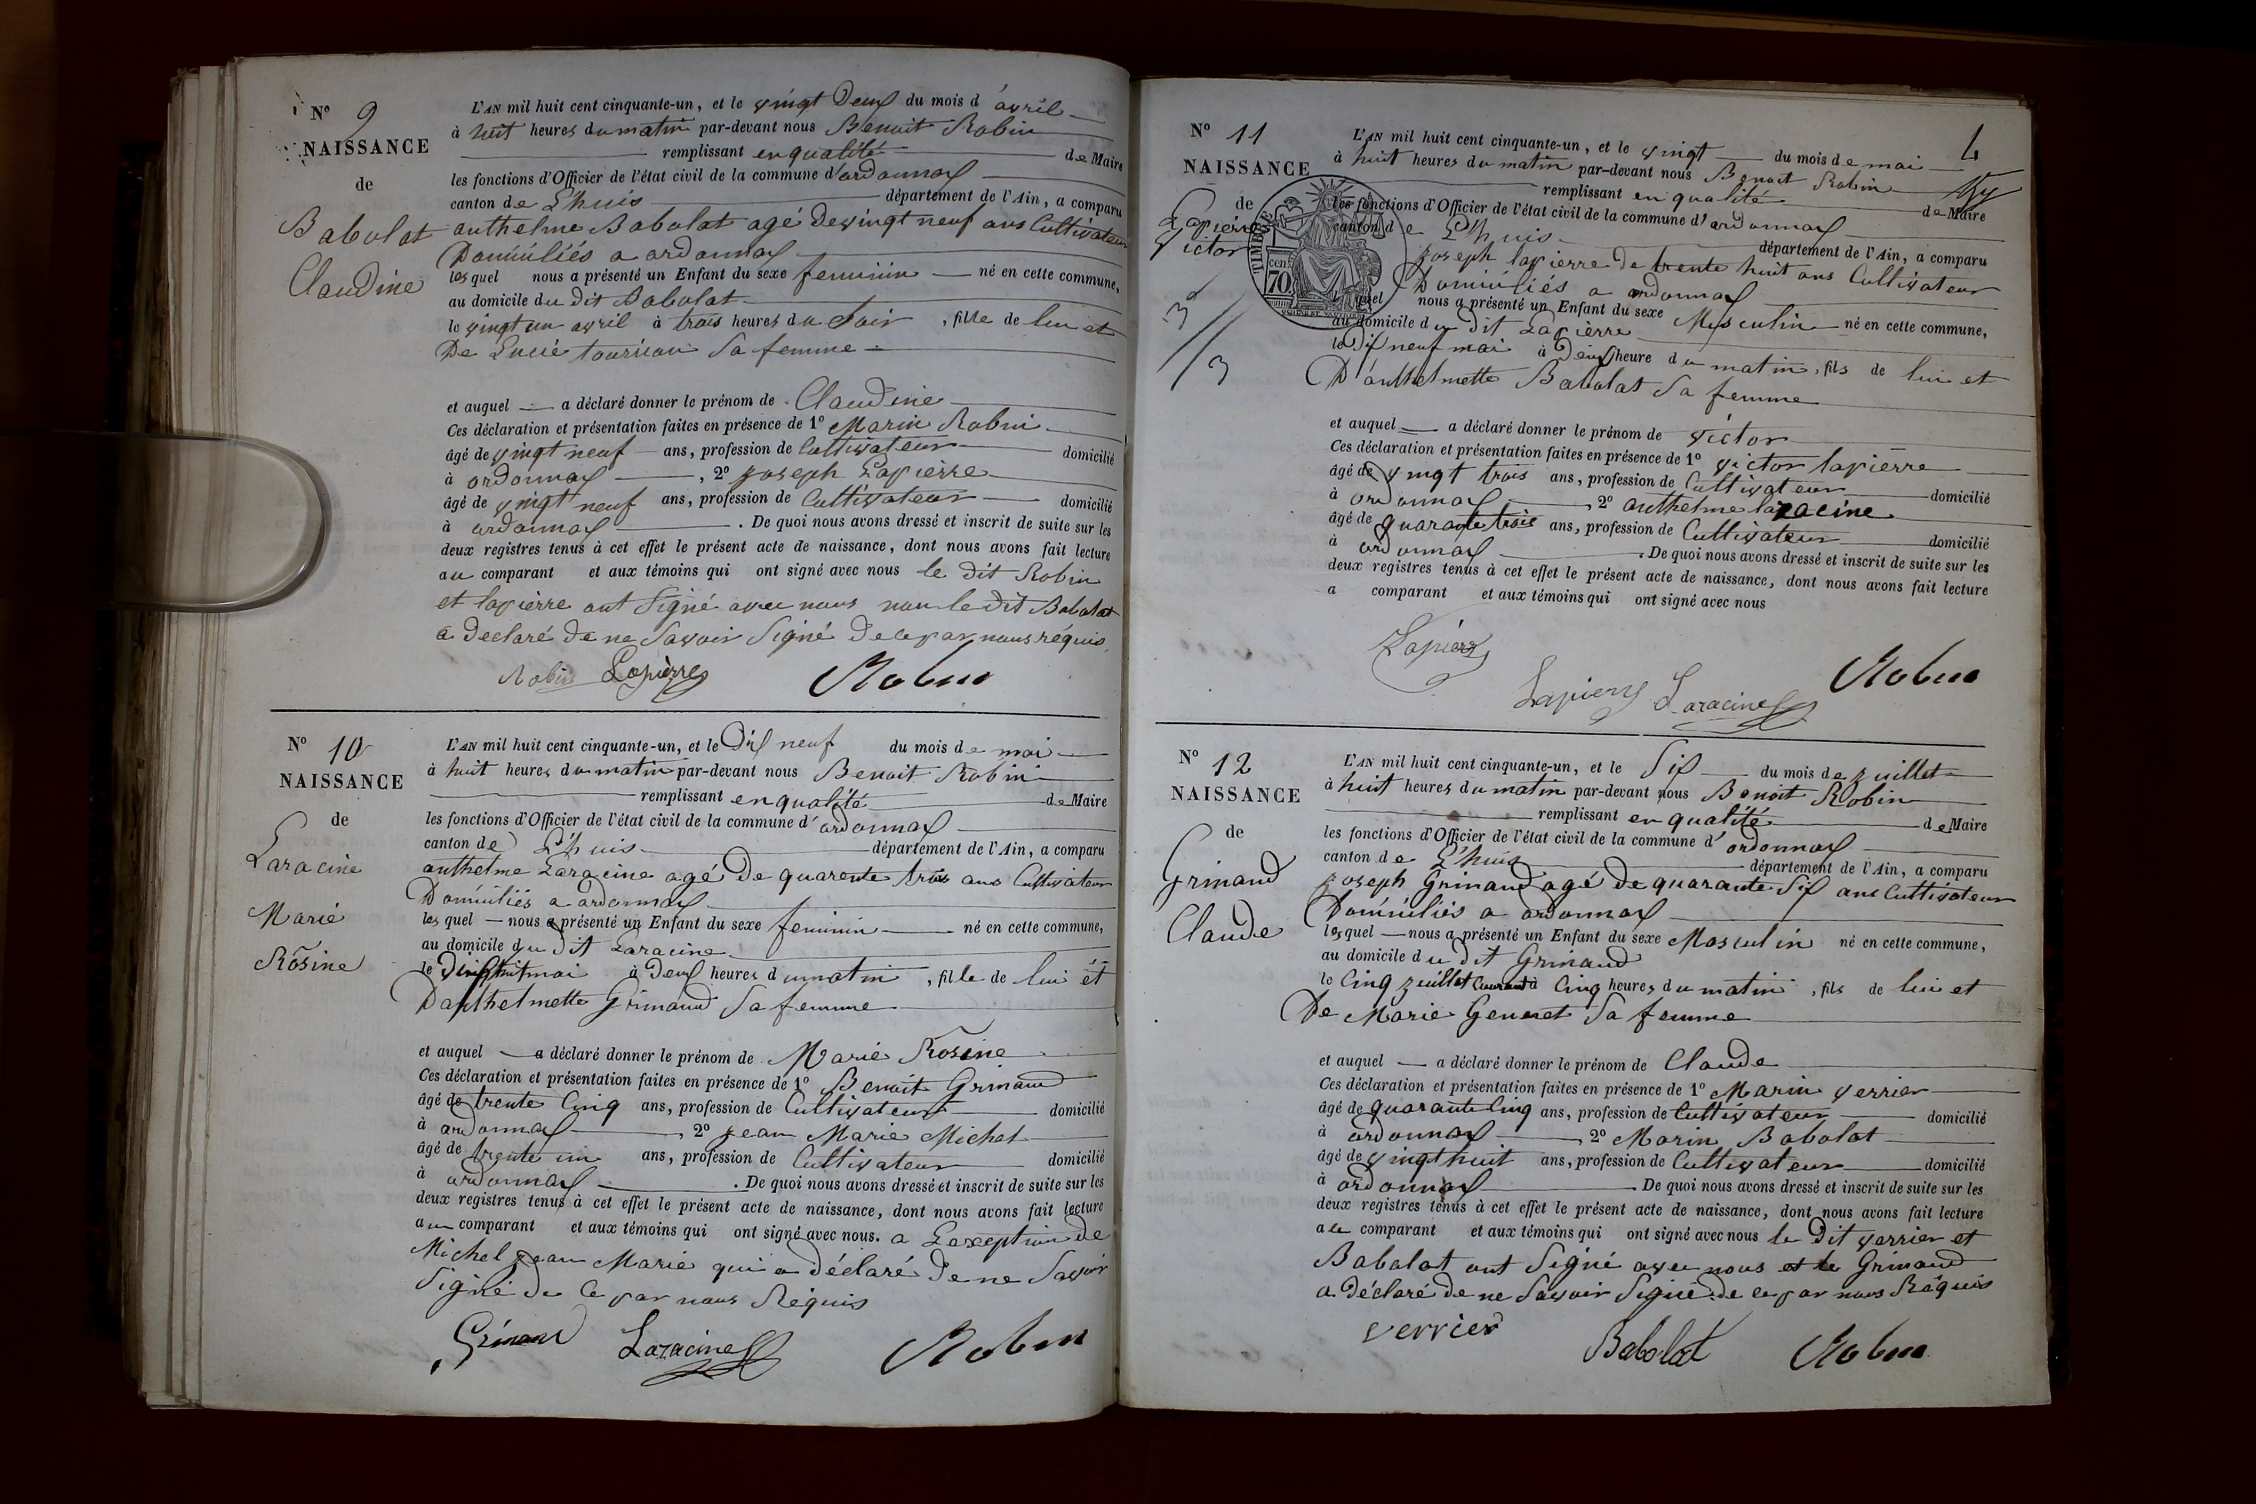 N° 9
NAISSANCE
de
Babolat
Claudine
L'AN mil huit cent cinquante-un, et le vingt Deux du mois d'avril
à huit heures du matin par-devant nous Benoit Robin
remplissant en qualité de Maire
les fonctions d'Officier de l'état civil de la commune d'ordonnax
canton de L'huis département de l'Ain, a comparu
anthelme Babolat agé de vingt neuf ans Cultivateur
Domiciliés a ordonnax
lesquel nous a présenté un Enfant du sexe feminin né en cette commune,
au domicile du dit Babolat
le vingt un avril à trois heures du Soir, fille de lui et
De Lucie Sa femme
et auquel a déclaré donner le prénom de Claudine
Ces déclaration et présentation faites en présence de 1° Marin Robin
âgé de vingt neuf ans, profession de Cultivateur domicilié
à ordonnax, 2° joseph Lapierre
âgé de vingt neuf ans, profession de Cultivateur domicilié
à ordonnax. De quoi nous avons dressé et inscrit de suite sur les
deux registres tenus à cet effet le présent acte de naissance, dont nous avons fait lecture
au comparant et aux témoins qui ont signé avec nous le dit Robin
et lapierre ont Signé avec nous non le dit Babolat
a declaré de ne Savoir Signé de ce par nous réquis.
Robin Lapierre Robin
N° 10
NAISSANCE
de
Laracine
Marie
Rosine
L'AN mil huit cent cinquante-un, et le Dix neuf du mois de mai
à huit heures du matin par-devant nous Benoit Robin
remplissant en qualité de Maire
les fonctions d'Officier de l'état civil de la commune d'ordonnax
canton de L'huis département de l'Ain, a comparu
anthelme Laracine agé De quarente trois ans Cultivateur
Domiciliés a ordonnax
lesquel nous a présenté un Enfant du sexe feminin né en cette commune,
au domicile du dit Laracine
le Dix huit mai à Deux heures du matin, fille de lui et
D'anthelmette Grinand Sa femme
et auquel a déclaré donner le prénom de Marie Rosine
Ces déclaration et présentation faites en présence de 1° Benoit Grinand
âgé de trente Cinq ans, profession de Cultivateur domicilié
à ordonnax, 2° jean Marie Michel
âgé de trente un ans, profession de Cultivateur domicilié
à ordonnax. De quoi nous avons dressé et inscrit de suite sur les
deux registres tenus à cet effet le présent acte de naissance, dont nous avons fait lecture
au comparant et aux témoins qui ont signé avec nous. a L'exeption de
Michel jean Marie qui a déclaré de ne Savoir
Signé de Ce par nous Réquis
Grinand Laracine Robin
4
N° 11
NAISSANCE
de
Lapierre
Victor
TIMBRE
70
L'AN mil huit cent cinquante-un, et le vingt du mois de mai
à huit heures du matin par-devant nous Benoit Robin
remplissant en qualité de Maire
les fonctions d'Officier de l'état civil de la commune d'ordonnax
canton de L'huis département de l'Ain, a comparu
joseph lapierre de trente huit ans Cultivateur
Domiciliés a ordonnax
lesquel nous a présenté un Enfant du sexe Masculin né en cette commune,
au domicile du dit Lapierre
le Dix neuf mai à Deux heure du matin, fils de lui et
D'anthelmette Babolat Sa femme
et auquel a déclaré donner le prénom de victor
Ces déclaration et présentation faites en présence de 1° victor lapierre
âgé de vingt trois ans, profession de Cultivateur domicilié
à ordonnax, 2° anthelme laracine
âgé de quarante trois ans, profession de Cultivateur domicilié
à ordonnax. De quoi nous avons dressé et inscrit de suite sur les
deux registres tenus à cet effet le présent acte de naissance, dont nous avons fait lecture
a comparant et aux témoins qui ont signé avec nous
Lapierre
Lapierre Laracine Robin
N° 12
NAISSANCE
de
Grinand
Claude
L'AN mil huit cent cinquante-un, et le Six du mois de juillet
à huit heures du matin par-devant nous Benoit Robin
remplissant en qualité de Maire
les fonctions d'Officier de l'état civil de la commune d'ordonnax
canton de L'huis département de l'Ain, a comparu
joseph Grinand agé de quarante Six ans Cultivateur
Domiciliés a ordonnax
lesquel nous a présenté un Enfant du sexe Masculin né en cette commune,
au domicile du dit Grinand
le Cinq juillet Courant à Cinq heures du matin, fils de lui et
De Marie Sa femme
et auquel a déclaré donner le prénom de Claude
Ces déclaration et présentation faites en présence de 1° Marin verrier
âgé de quarante Cinq ans, profession de Cultivateur domicilié
à ordonnax, 2° Marin Babolat
âgé de vingt huit ans, profession de Cultivateur domicilié
à ordonnax. De quoi nous avons dressé et inscrit de suite sur les
deux registres tenus à cet effet le présent acte de naissance, dont nous avons fait lecture
au comparant et aux témoins qui ont signé avec nous le dit verrier et
Babalat ont Signé avec nous et le Grinand
a déclaré de ne Savoir Signé de ce par nous Réquis
verrier Babolat Robin